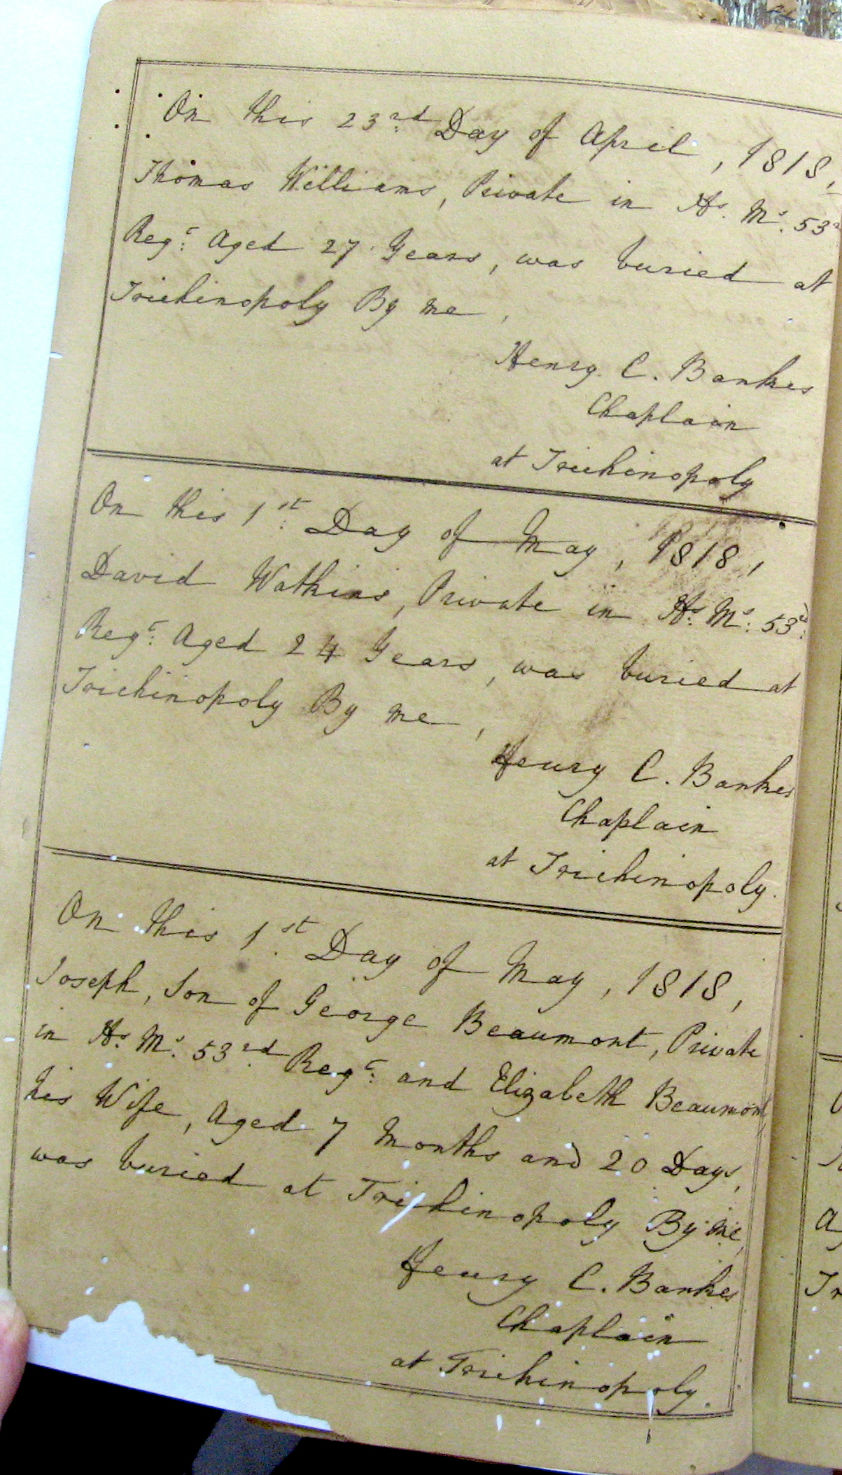 On this 23rd Day of April, 1818,
Thomas Williams, Private in Hs. Ms. 53
Regt. Aged 27 Years, was buried at
Trichinopoly By me,
Henry C. Bankes
Chaplain
at Trichinopoly
On this 1st Day of May, 1818,
David Watkins, Private in Hs. Ms. 53d.
Regt. Aged 24 Years, was buried at
Trichinopoly By me,
Henry C. Bankes
Chaplain
at Trichinopoly.
On this 1st Day of May, 1818,
Joseph, Son of George Beaumont, Private
in Hs. Ms. 53rd Regt. and Elizabeth Beaumont,
his Wife, Aged 7 Months and 20 Days,
was buried at Trichinopoly By me,
Henry C. Bankes
Chaplain
at Trichinopoly.